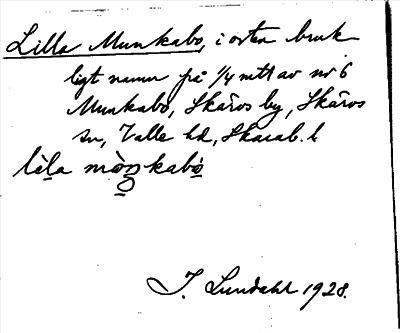 Lilla Munkabo, i orten bruk-
ligt namn på 1/4 mtl av nr 6
Munkabo, Skärvs by, Skärvs
sn, Valle hd, Skarab. l.
lìla mòŋkabo
J. Lundahl 1928.